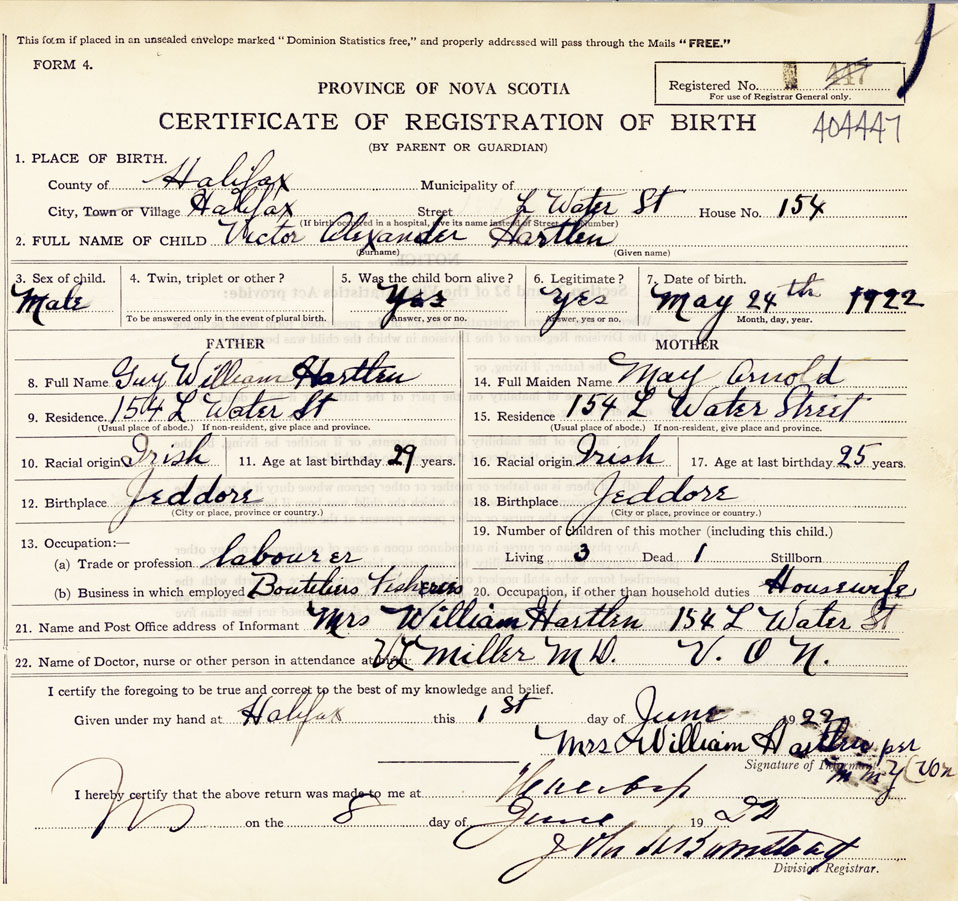 This form if placed in an unsealed envelope marked "Dominion Statistics free," and properly addressed will pass through the Mails "FREE."
FORM 4.
Registered No. 447
For use of Registrar General only.
PROVINCE OF NOVA SCOTIA
CERTIFICATE OF REGISTRATION OF BIRTH 404447
(BY PARENT OR GUARDIAN)
1. PLACE OF BIRTH.
County of Halifax Municipality of
City, Town or Village Halifax Street L Water St House No. 154
(If birth occurred in a hospital, give its name instead of Street and Number)
2. FULL NAME OF CHILD Victor Alexander Hartlen
(Surname) (Given name)
3. Sex of child. 4. Twin, triplet or other? 5. Was the child born alive? 6. Legitimate? 7. Date of birth.
Male Yes Yes May 24th 1922
To be answered only in the event of plural birth. Answer, yes or no. Answer, yes or no. Month, day, year.
FATHER MOTHER
8. Full Name Guy William Hartlen 14. Full Maiden Name May Arnold
9. Residence. 154 L Water St 15. Residence 154 L Water Street
(Usual place of abode.) If non-resident, give place and province. (Usual place of abode.) If non-resident, give place and province.
10. Racial origin Irish 11. Age at last birthday 29 years. 16. Racial origin Irish 17. Age at last birthday 25 years.
12. Birthplace Jeddore 18. Birthplace Jeddore
(City or place, province or country.) (City or place, province or country.)
13. Occupation:— 19. Number of children of this mother (including this child.)
(a) Trade or profession labourer Living 3 Dead 1 Stillborn
(b) Business in which employed Boutiliers Fisheries 20. Occupation, if other than household duties Housewife
21. Name and Post Office address of Informant Mrs William Hartlen 154 L Water St
22. Name of Doctor, nurse or other person in attendance at birth Miller M D. V. O N.
I certify the foregoing to be true and correct to the best of my knowledge and belief.
Given under my hand at Halifax this 1st day of June 1922
Mrs William Hartlen per
Signature of Informant
I hereby certify that the above return was made to me at
on the 8 day of June 19 22
John
Division Registrar.